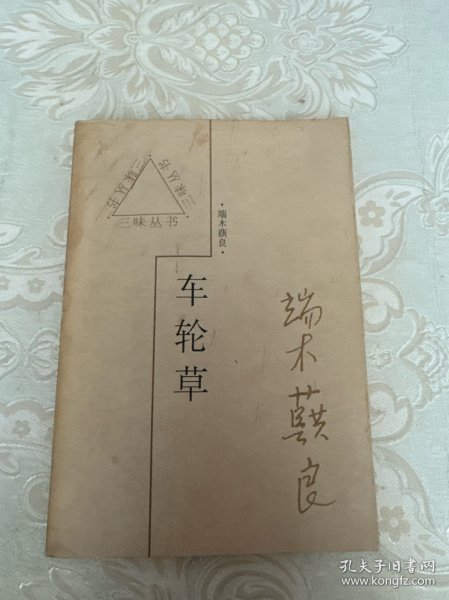 三味丛书
三味丛书
三味丛书
·端木蕻良·
车轮草
端木蕻良
孔夫子旧书网
www.kongfz.com